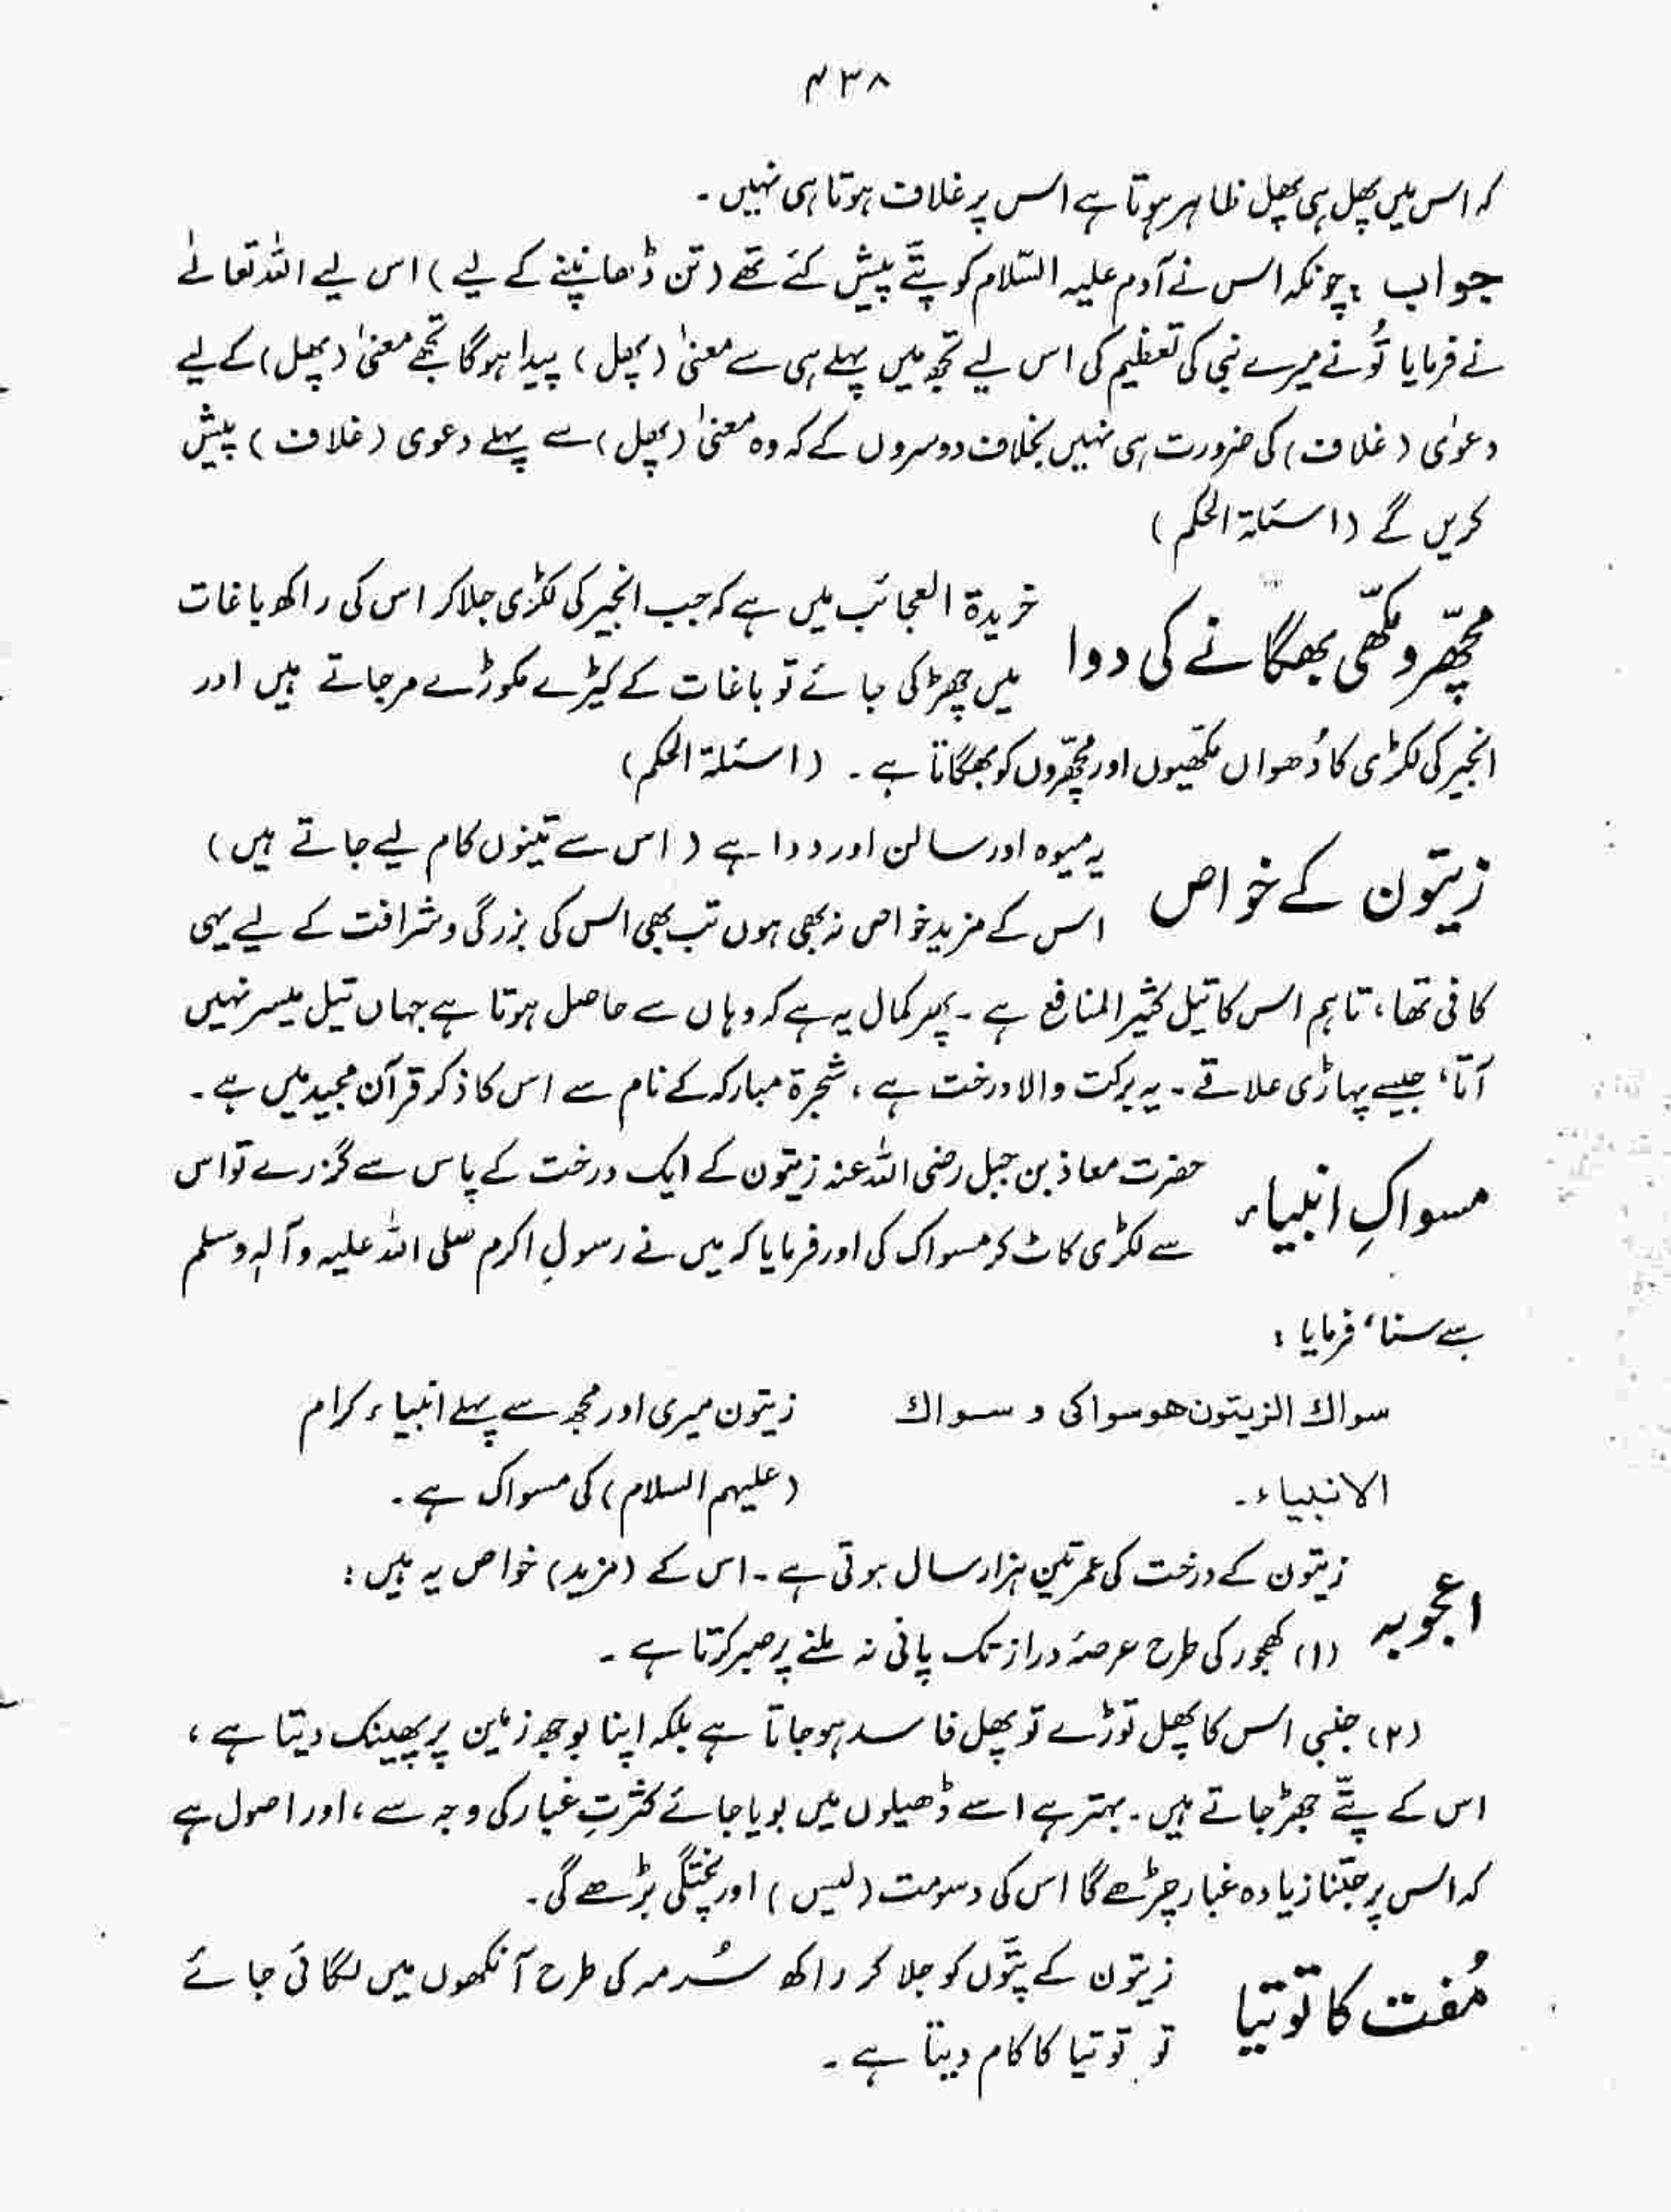 ۴۳۸
کہ اس میں پھل ہی پھل ظاہر ہوتا ہے اس پر غلاف ہوتا ہی نہیں ۔
جواب : چونکہ اس نے آدم علیہ السّلام کو پتّے پیش کئے تھے (تن ڈھانپنے کے لیے) اس لیے اللہ تعالےٰ
نے فرمایا تُو نے میرے نبی کی تعظیم کی اس لیے تجھ میں پہلے ہی سے معنیٰ (پھل) پیدا ہوگا تجھے معنیٰ (پھل) کے لیے
دعوٰی (غلاف) کی ضرورت ہی نہیں بخلاف دوسروں کے کہ وہ معنیٰ (پھل) سے پہلے دعوی (غلاف) پیش
کریں گے (اسئلۃ الحکم)
مچھّر و مکھّی بھگانے کی دوا
خریدۃ العجائب میں ہے کہ جب انجیر کی لکڑی جلا کر اس کی راکھ باغات
میں چھڑکی جائے تو باغات کے کیڑے مکوڑے مر جاتے ہیں اور
انجیر کی لکڑی کا دُھواں مکھّیوں اور مچھّروں کو بھگاتا ہے ۔ (اسئلۃ الحکم)
زیتون کے خواص
یہ میوہ اور سالن اور دوا ہے (اس سے تینوں کام لیے جاتے ہیں)
اس کے مزید خواص نہ بھی ہوں تب بھی اس کی بزرگی و شرافت کے لیے یہی
کافی تھا، تاہم اس کا تیل کثیر المنافع ہے ۔ پھر کمال یہ ہے کہ وہاں سے حاصل ہوتا ہے جہاں تیل میسر نہیں
آتا، جیسے پہاڑی علاقے ۔ یہ برکت والا درخت ہے ، شجرۃ مبارکہ کے نام سے اس کا ذکر قرآن مجید میں ہے ۔
مسواکِ انبیاء
حضرت معاذ بن جبل رضی اللہ عنہ زیتون کے ایک درخت کے پاس سے گزرے تو اس
سے لکڑی کاٹ کر مسواک کی اور فرمایا کہ میں نے رسولِ اکرم صلی اللہ علیہ وآلہٖ وسلم
سے سنا، فرمایا :
سواك الزيتون هو سواكی و سواك
الانبياء ۔
زیتون میری اور مجھ سے پہلے انبیاء کرام
(علیہم السلام) کی مسواک ہے ۔
اعجوبہ
زیتون کے درخت کی عمر تین ہزار سال ہوتی ہے ۔ اس کے (مزید) خواص یہ ہیں :
(۱) کھجور کی طرح عرصۂ دراز تک پانی نہ ملنے پر صبر کرتا ہے ۔
(۲) جنبی اس کا پھل توڑے تو پھل فاسد ہو جاتا ہے بلکہ اپنا بوجھ زمین پر پھینک دیتا ہے ،
اس کے پتّے جھڑ جاتے ہیں ۔ بہتر ہے اسے ڈھیلوں میں بویا جائے کثرتِ غبار کی وجہ سے ، اور اصول ہے
کہ اس پر جتنا زیادہ غبار چڑھے گا اس کی دسومت (لیس) اور پختگی بڑھے گی ۔
مُفت کا توتیا
زیتون کے پتّوں کو جلا کر راکھ سُرمہ کی طرح آنکھوں میں لگائی جائے
تو توتیا کا کام دیتا ہے ۔